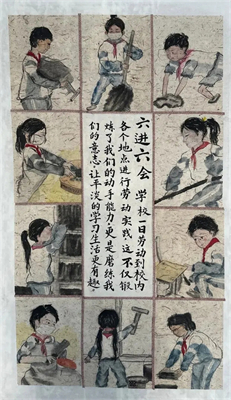 六进六会 学校一日劳动到校内
各个地点进行劳动实践这不仅锻
炼了我们的动手能力更是磨练我
们的意志，让平淡的学习生活更有趣